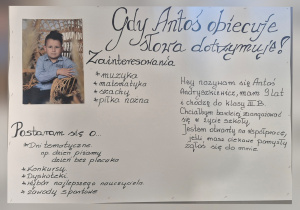 Gdy Antoś obiecuje
słowa dotrzymuje!
Zainteresowania
* muzyka
* matematyka
* szachy
* piłka nożna
Hej nazywam się Antoś
Andryszkiewicz, mam 9 lat
i chodzę do klasy III B.
Chciałbym bardziej zaangażować
się w życie szkoły.
Jestem otwarty na współpracę,
jeśli masz ciekawe pomysły
zgłoś się do mnie.
Postaram się o...
* Dni tematyczne
np. dzień piżamy
dzień bez plecaka
* Konkursy
* Dyskoteki
* Wybór najlepszego nauczyciela
* Zawody sportowe